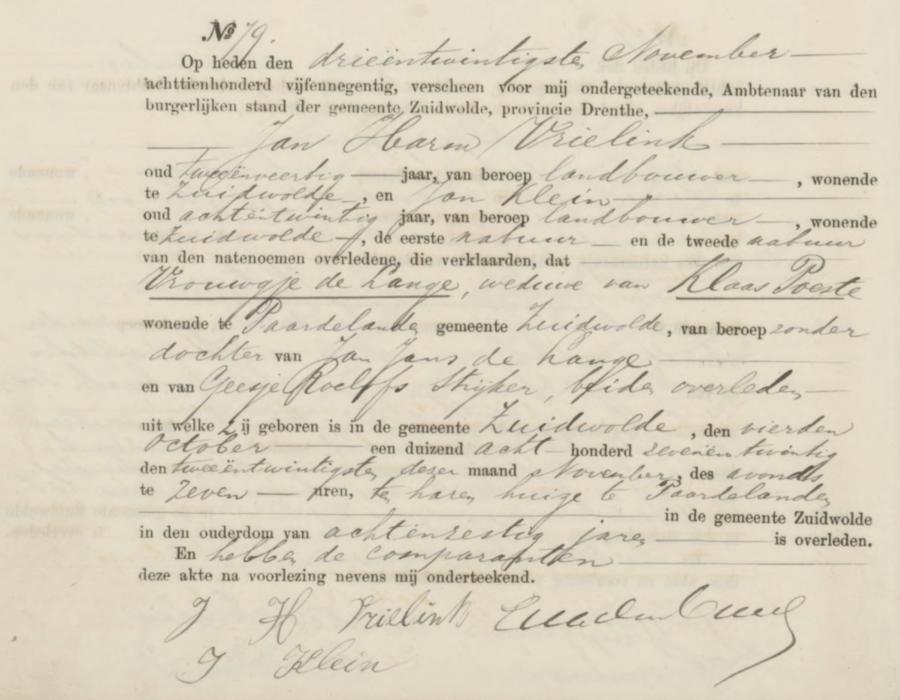 No 79.
Op heden den drieëntwintigsten November
achttienhonderd vijfennegentig, verscheen voor mij ondergeteekende, Ambtenaar van den
burgerlijken stand der gemeente Zuidwolde, provincie Drenthe,
Jan Harm Vrielink
oud tweeënveertig jaar, van beroep landbouwer, wonende
te Zuidwolde, en Jan Klein
oud achtëntwintig jaar, van beroep landbouwer, wonende
te Zuidwolde, de eerste nabuur en de tweede nabuur
van den natenoemen overledene, die verklaarden, dat
Vrouwgje de Lange, weduwe van Klaas Poeste
wonende te Paardelanden gemeente Zuidwolde, van beroep zonder
dochter van Jan Jans de Lange
en van Geesje Roelofs Strijker, beiden overleden
uit welke zij geboren is in de gemeente Zuidwolde, den vierden
October een duizend acht honderd zevenentwintig
den tweeëntwintigsten dezer maand November, des avonds
te zeven uren, ten haren huize te Paardelanden
in de gemeente Zuidwolde
in den ouderdom van achtënzestig jaren is overleden.
En hebben de comparanten
deze akte na voorlezing nevens mij onderteekend.
J H Vrielink
J Klein